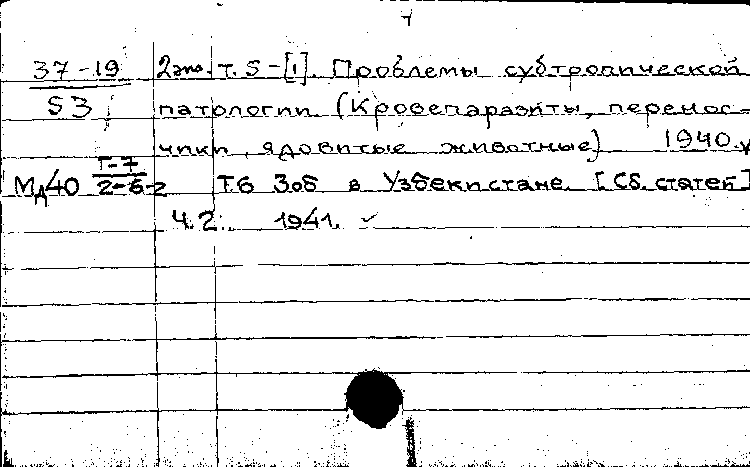 37-19 2экз. Т. 5-[1]. Проблемы субтропической
53 патологии. (Кровепаразиты, перенос-
чики, ядовитые животные) 1940. v
МД40 Т-7/2-6-2 Т.6 Зоб в Узбекистане. [Сб. статей]
Ч.2. 1941. ✓